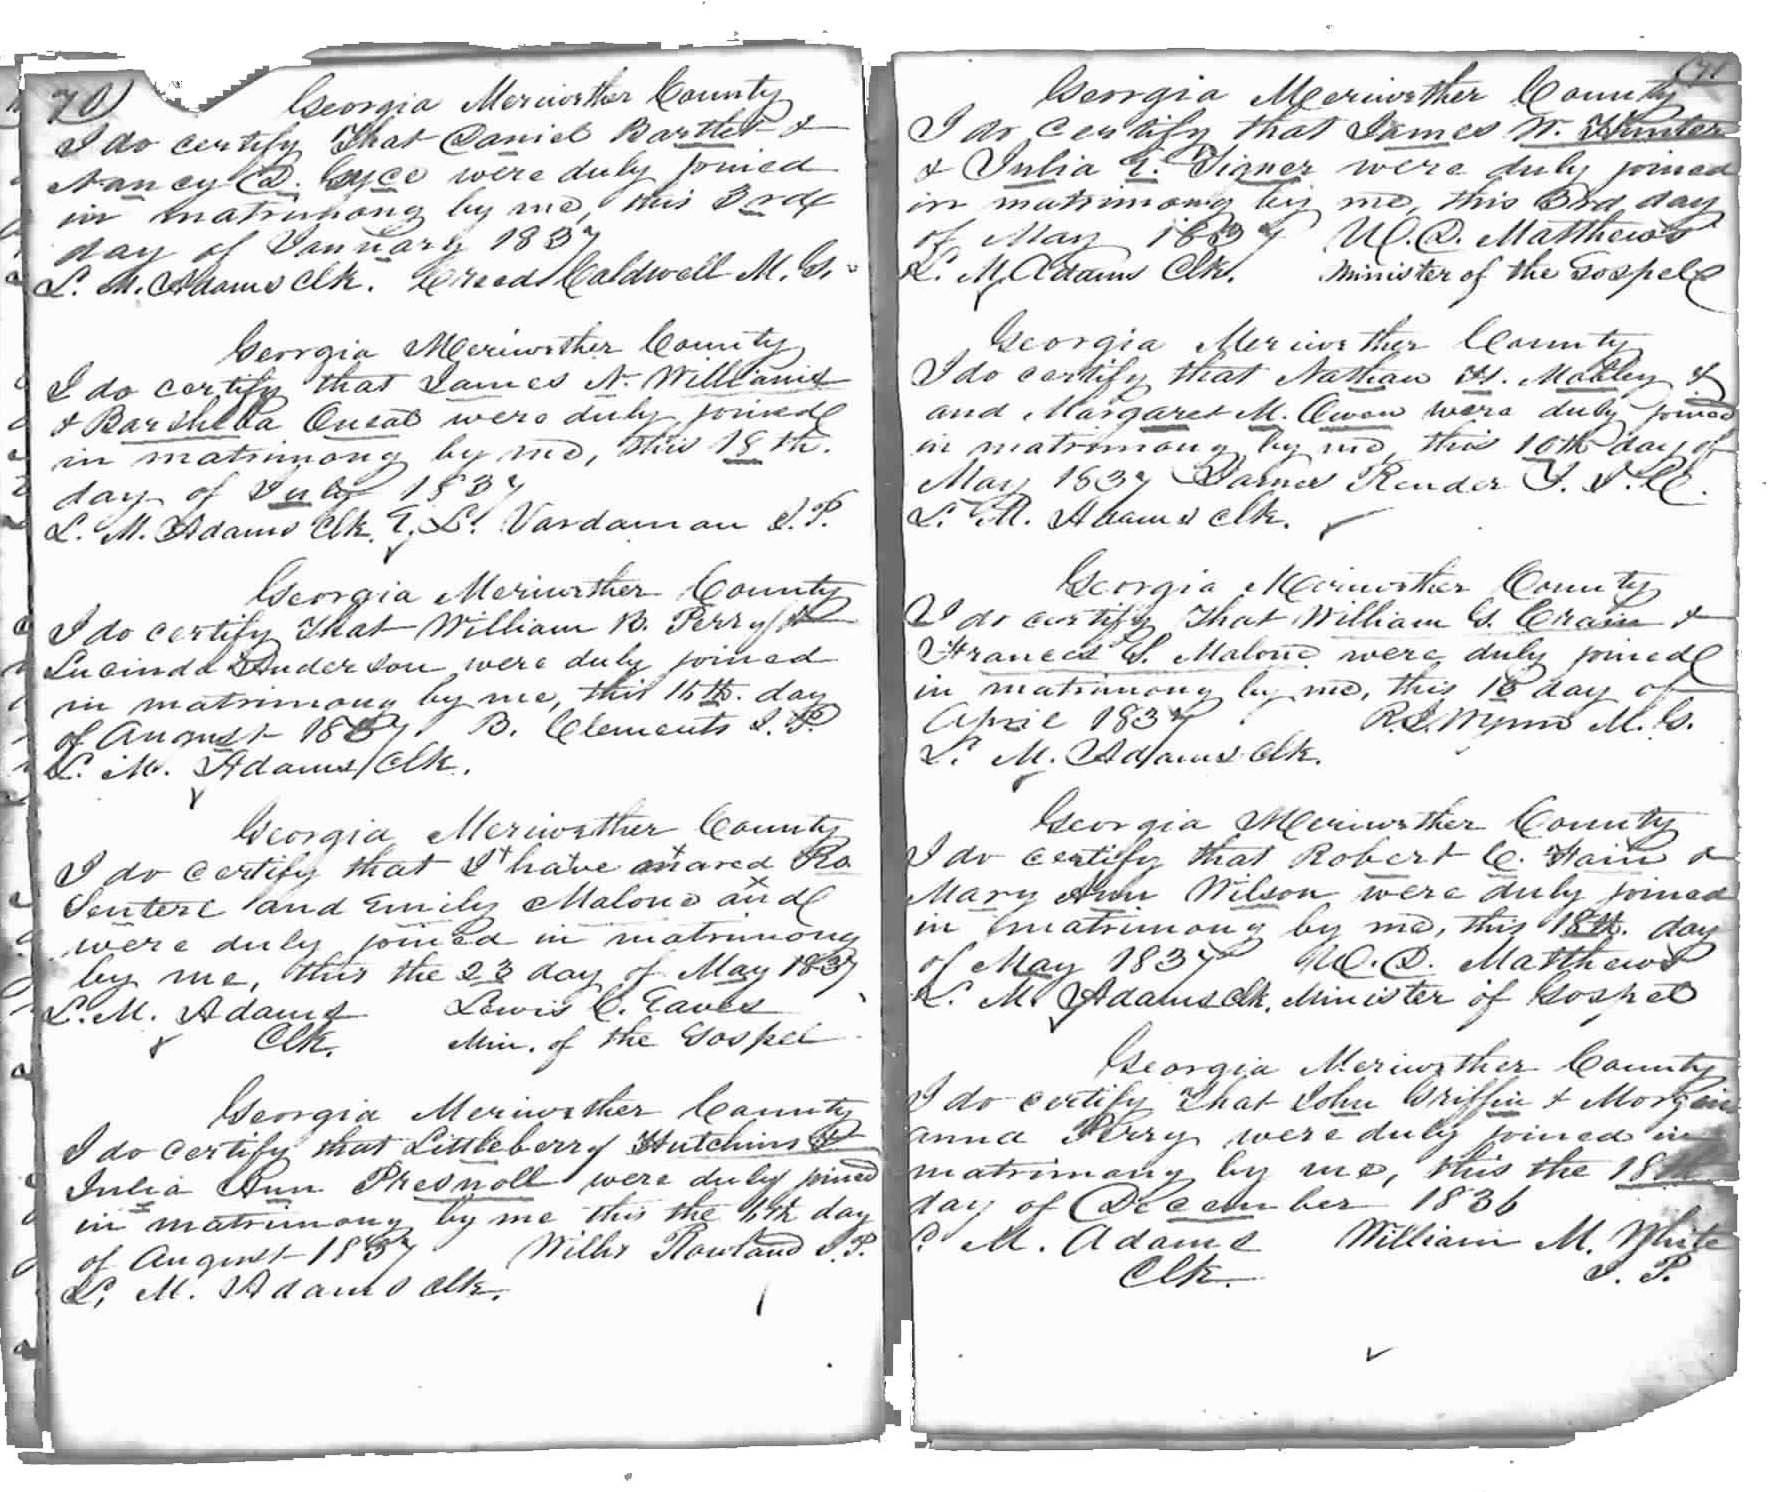 70)
Georgia Meriwether County
I do certify That Daniel Bartlet &
Nancy D. Gyce were duly joined
in matrimony by me, this 3rd
day of January 1837
L. M. Adams Clk. Creed Caldwell M. G.
Georgia Meriwether County
I do certify that James N. Williams
& Barsheba Oneal were duly joined
in matrimony by me, this 18th.
day of July 1837
L. M. Adams Clk. E. L. Vardaman J. P.
Georgia Meriwether County
I do certify That William B. Perry &
Lucinda Anderson were duly joined
in matrimony by me, this 15th. day
of August 1837 B. Clements J. P.
L. M. Adams Clk.
Georgia Meriwether County
I do certify that I have mared Ro
Sentere and Emily Malone and
were duly joined in matrimony
by me, this the 23 day of May 1837
L. M. Adams Lewis C. Eaves
Clk. Min. of the Gospel
Georgia Meriwether County
I do certify that Littleberry Hutchins &
Julia Ann Presnoll were duly joined
in matrimony by me this the 6th day
of August 1837 Willis Rowland J. P.
L. M. Adams Clk.
(71
Georgia Meriwether County
I do certify that James W. Hunter
& Julia E. Tigner were duly joined
in matrimony by me, this 3rd day
of May 1837 W. D. Matthews
L. M. Adams Clk. Minister of the Gospel
Georgia Meriwether County
I do certify that Nathan H. Mobley &
and Margaret M. Owen were duly joined
in matrimony by me, this 10th day of
May 1837 James Render J. I. C.
L. M. Adams Clk.
Georgia Meriwether County
I do certify That William G. Crain &
Frances S. Malone were duly joined
in matrimony by me, this 18 day of
April 1837 R. S. Wynn M. G.
L. M. Adams Clk.
Georgia Meriwether County
I do certify that Robert C. Fain &
Mary Ann Wilson were duly joined
in matrimony by me, this 18th. day
of May 1837 W. D. Matthews
L. M. Adams Clk. Minister of Gospel
Georgia Meriwether County
I do certify That John Griffin & Morgin
anna Perry were duly joined in
matrimony by me, this the 18th
day of December 1836
L. M. Adams William M. White
Clk. J. P.